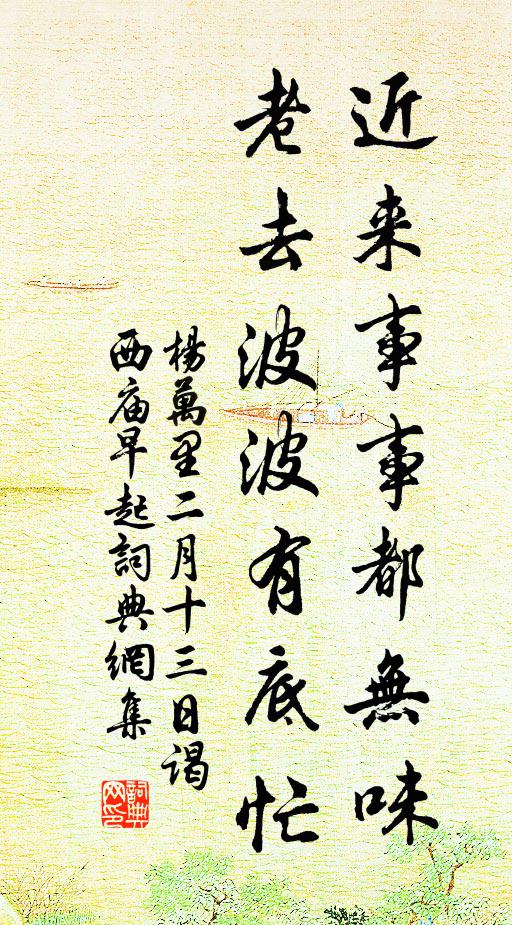 近来事事都無味
老去波波有底忙
楊萬里二月十三日謁
西庙早起詞典網集
詞典
网印